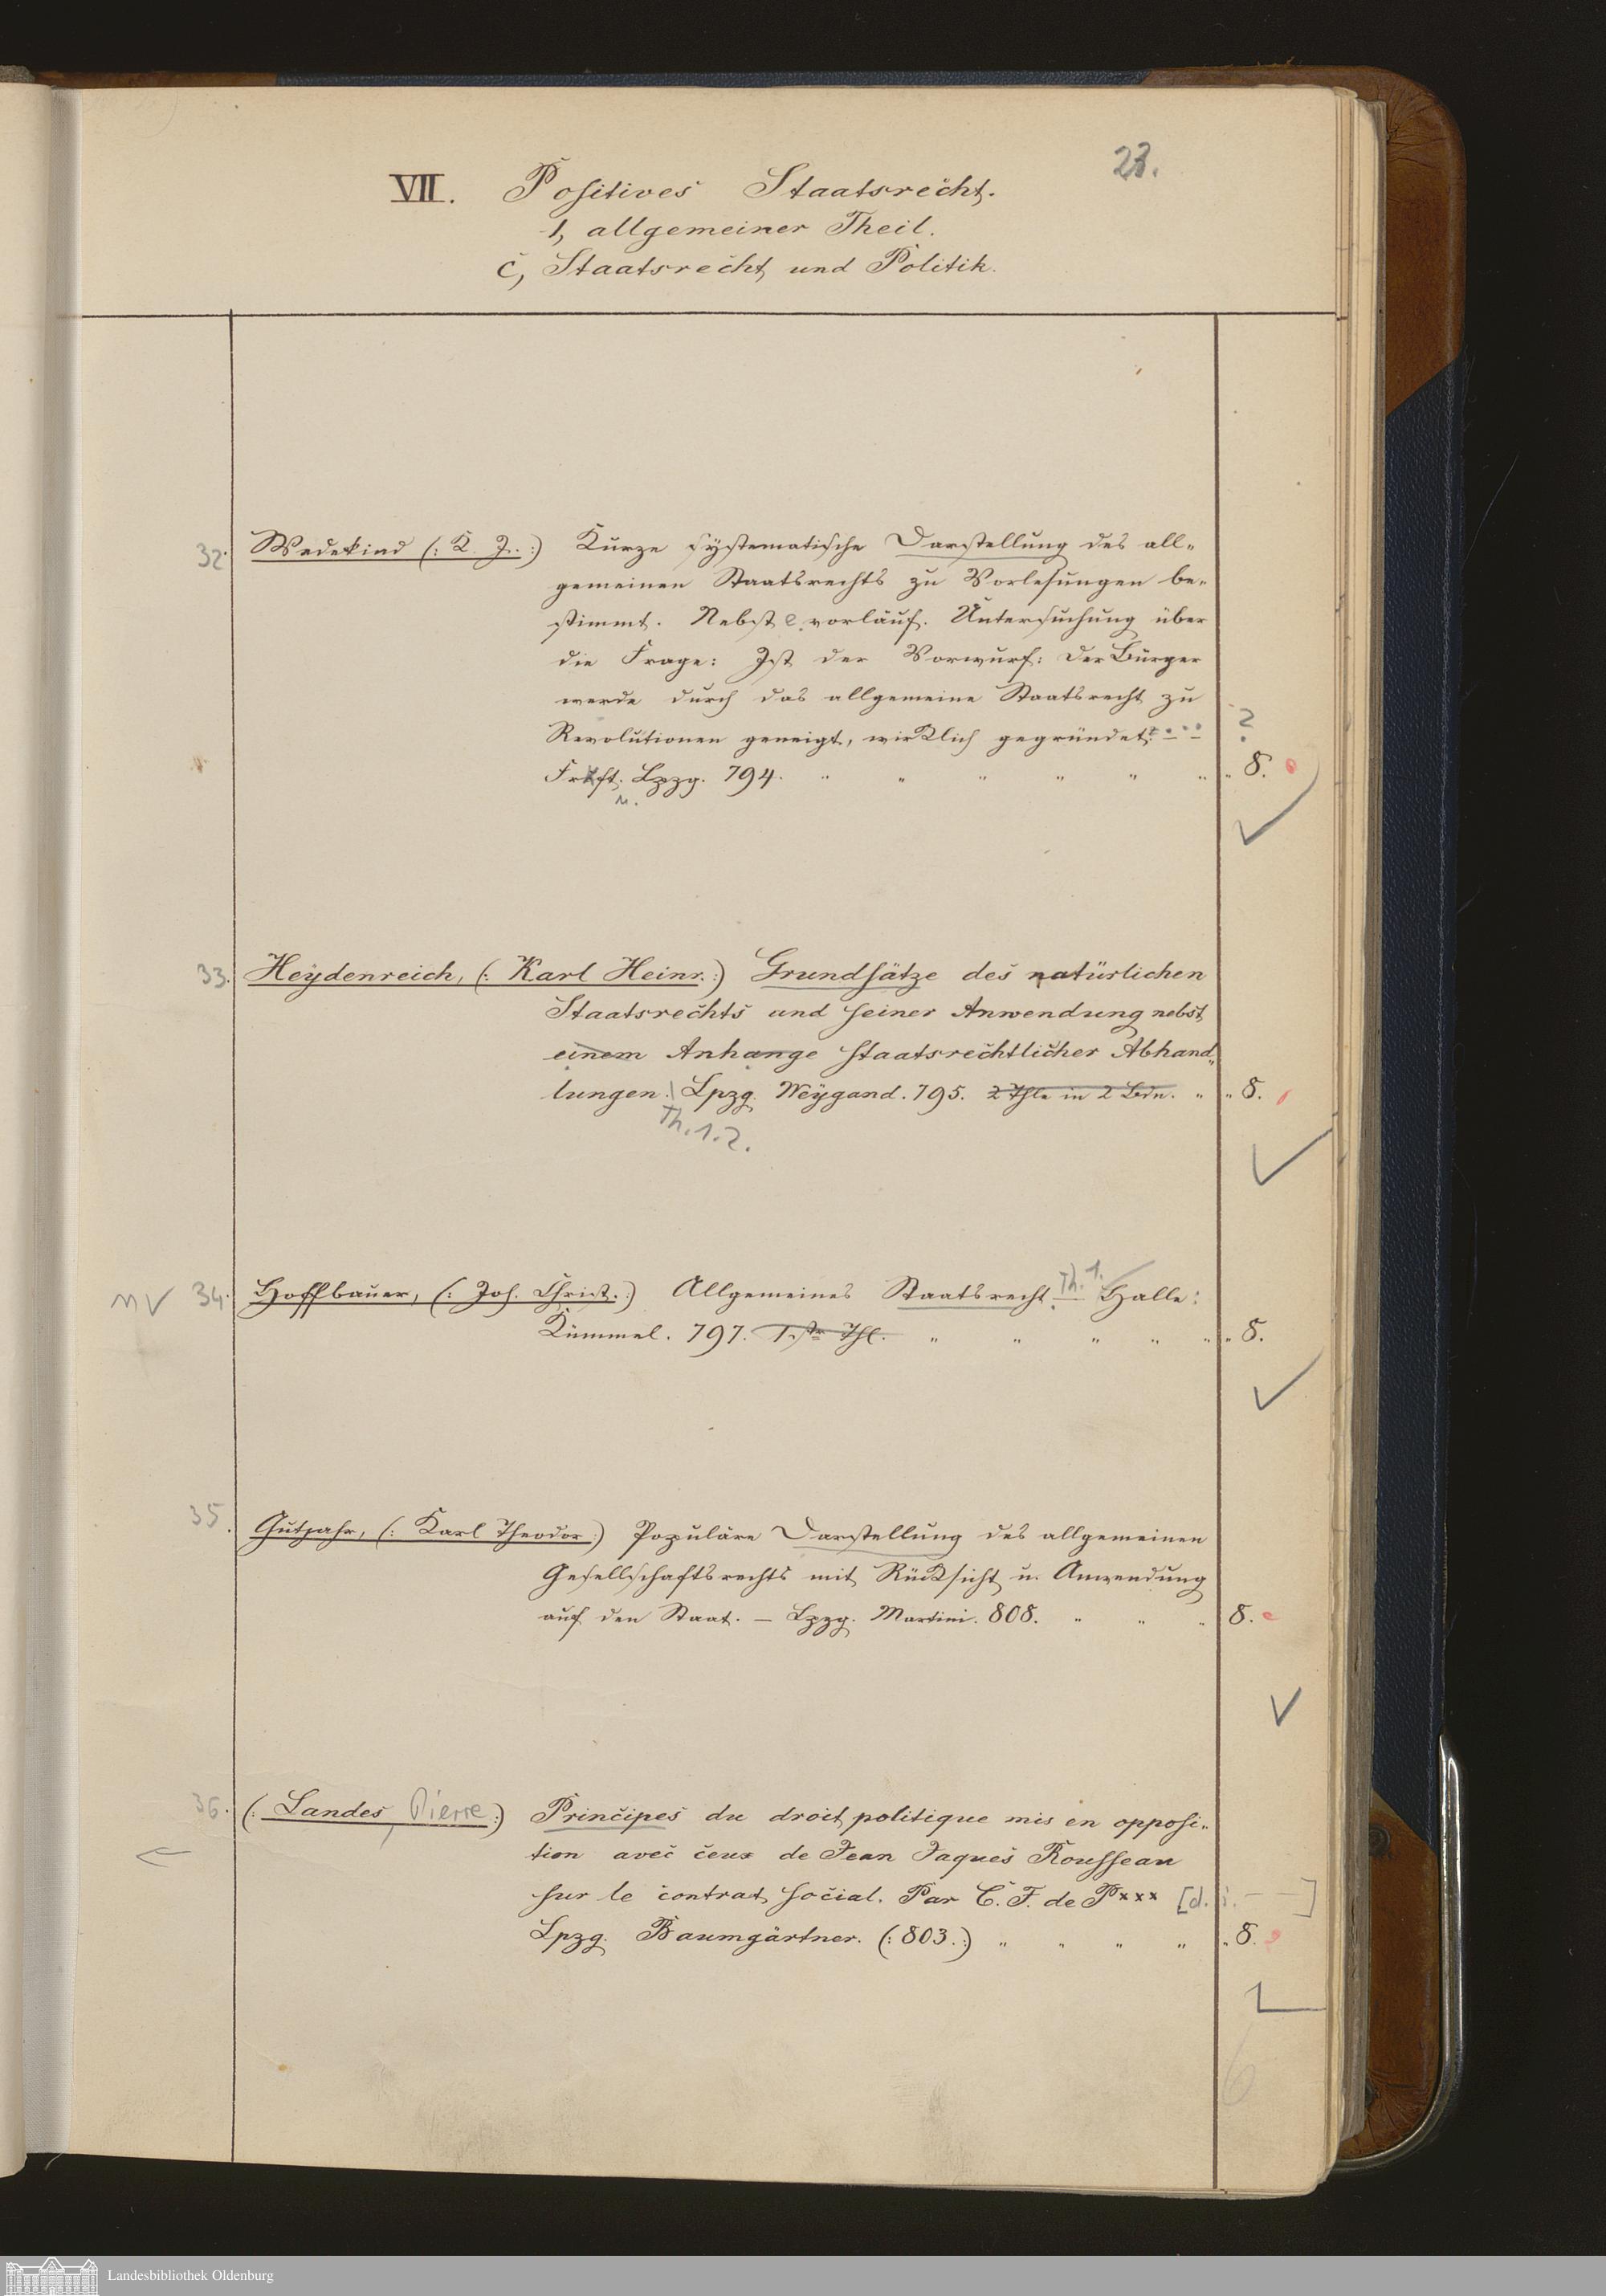 23.
VII. Positives Staatsrecht.
1, allgemeiner Theil.
c, Staatsrecht und Politik.
32. Wedekind (: K. I. :) Kurze systematische Darstellung des all-
gemeinen Staatsrechts zu Vorlesungen be-
stimmt. Nebst e. vorläuf. Untersuchung über
die Frage: Ist der Vorwurf: Der Bürger
werde durch das allgemeine Staatsrecht zu
Revolutionen geneigt, wirklich gegründet? ?
Frkft. Lpzg. 794. " " " " " " " 8.
u.
33. Heydenreich, (: Karl Heinr. :) Grundsätze des natürlichen
Staatsrechts und seiner Anwendung nebst
einem Anhange staatsrechtlicher Abhand-
lungen. Lpzg. Weygand. 795. 2 Thle in 2 Bdn. " " 8.
Th. 1. 2.
34. Hoffbauer, (: Joh. Christ. :) Allgemeines Staatsrecht. Th. 1. Halle:
Kümmel. 797. 1ster Thl. " " " " " " 8.
35. Gutjahr, (: Karl Theodor :) Populäre Darstellung des allgemeinen
Gesellschaftsrechts mit Rücksicht u. Anwendung
auf den Staat. — Lpzg. Martini. 808. " " " 8.
36. (: Landes, Pierre :) Principes du droit politique mis en opposi-
tion avec ceux de Jean Jaques Rousseau
sur le contrat social. Par C. F. de Pxxx [d. i. — —]
Lpzg. Baumgärtner. (: 803. :) " " " " " 8.
Landesbibliothek Oldenburg